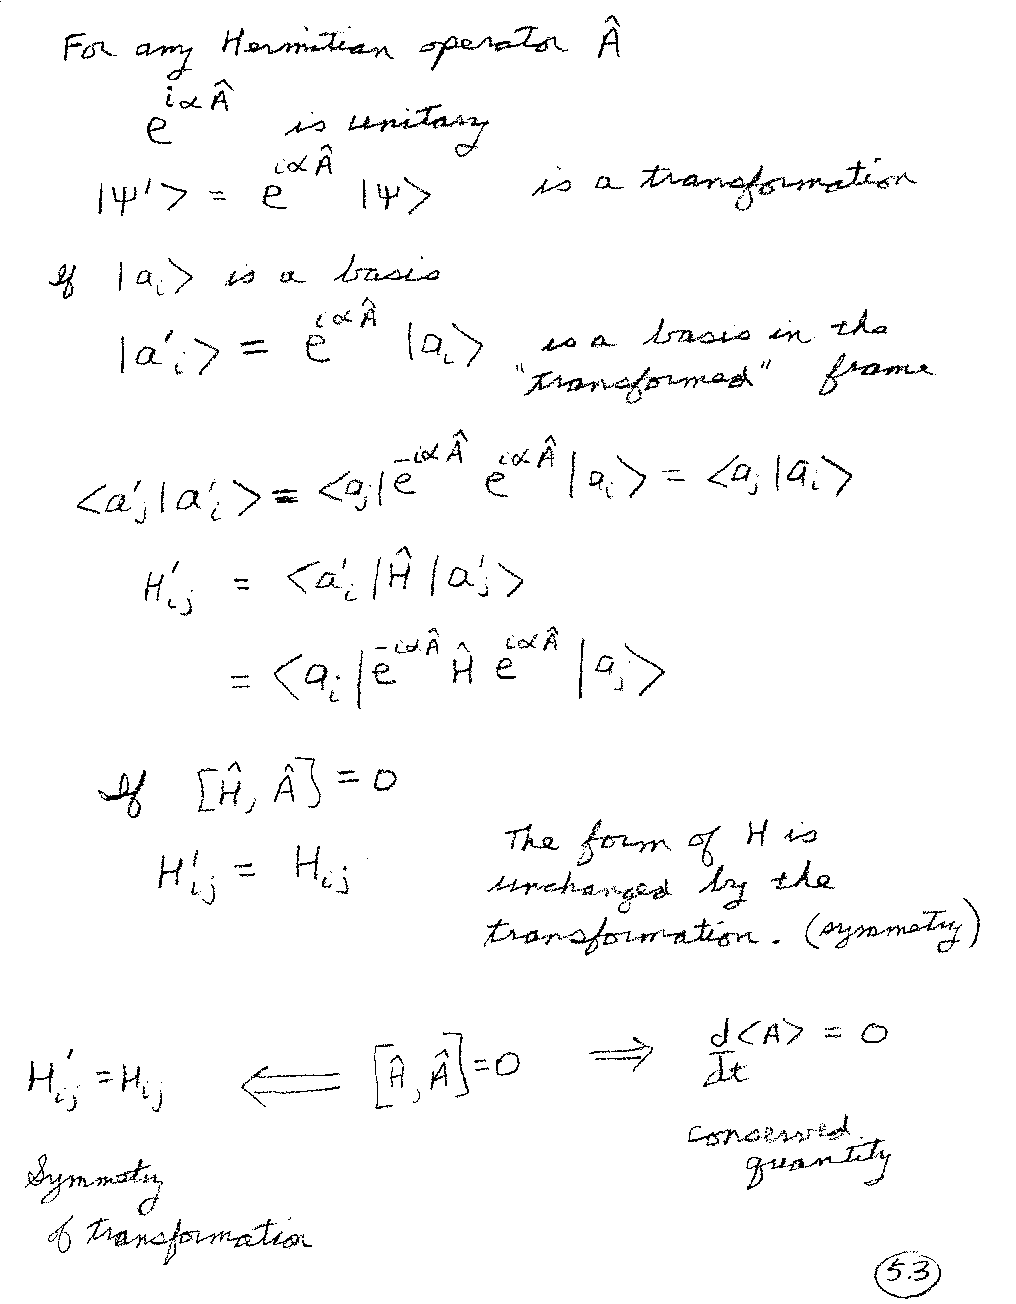 For any Hermitian operator Â
e^{iαÂ} is unitary
|ψ'> = e^{iαÂ} |ψ> is a transformation
If |a_i> is a basis
|a'_i> = e^{iαÂ} |a_i> is a basis in the
"transformed" frame
<a'_j|a'_i> = <a_j|e^{-iαÂ} e^{iαÂ}|a_i> = <a_j|a_i>
H'_{ij} = <a'_i|Ĥ|a'_j>
= <a_i|e^{-iαÂ} Ĥ e^{iαÂ}|a_j>
If [Ĥ, Â] = 0
H'_{ij} = H_{ij}
The form of H is
unchanged by the
transformation. (symmetry)
H'_{ij} = H_{ij} ⟸ [Ĥ, Â] = 0 ⟹ d<A>/dt = 0
conserved
quantity
Symmetry
of transformation
5.3